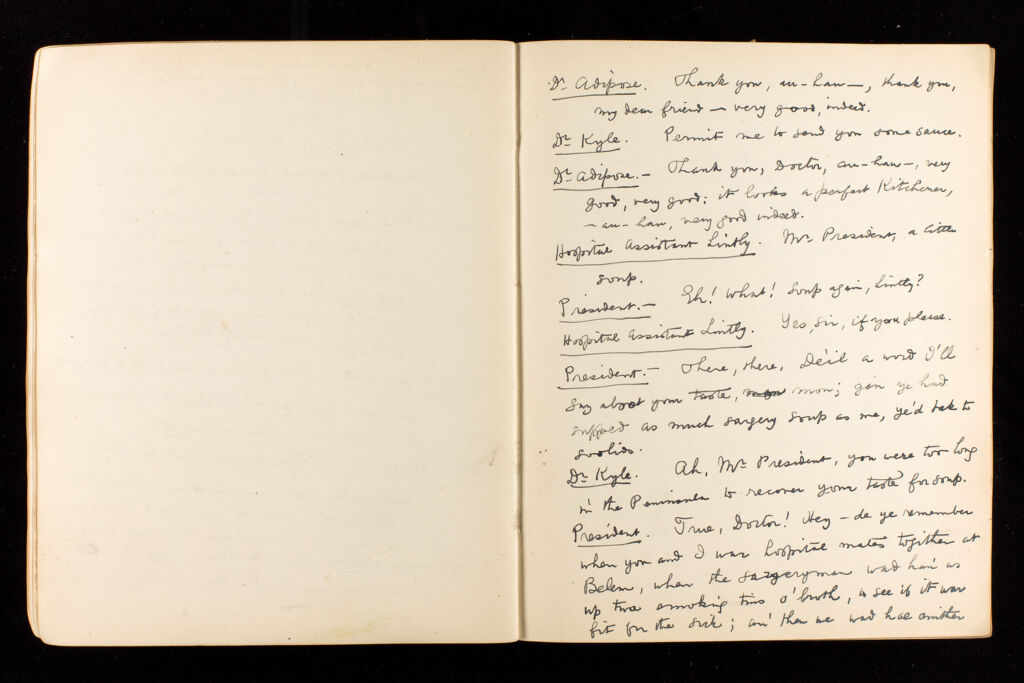 Dr Adipose. Thank you, au-hau—, thank you,
my dear friend — very good, indeed.
Dr Kyle. Permit me to send you some sauce.
Dr Adipose.— Thank you, Doctor, au-hau—, very
good, very good: it looks a perfect Kitchener,
— au-hau, very good indeed.
Hospital Assistant Lintly. Mr President, a little
soup.
President.— Eh! What! Soup again, Lintly?
Hospital Assistant Lintly. Yes, Sir, if you please.
President.— There, there, De'il a word I'll
say aboot your taste, mon; gin ye had
supped as much sargery soup as me, ye'd take to
soolids.
Dr Kyle. Ah, Mr President, you were too long
in the Peninsula to recover your taste for soup.
President. True, Doctor! Hey — de ye remember
when you and I war hospital mates togither at
Belem, when the sazgeryman wad han' us
up twa smoking tins o' broth, to see if it war
fit for the sick; an' then we wad hae anither